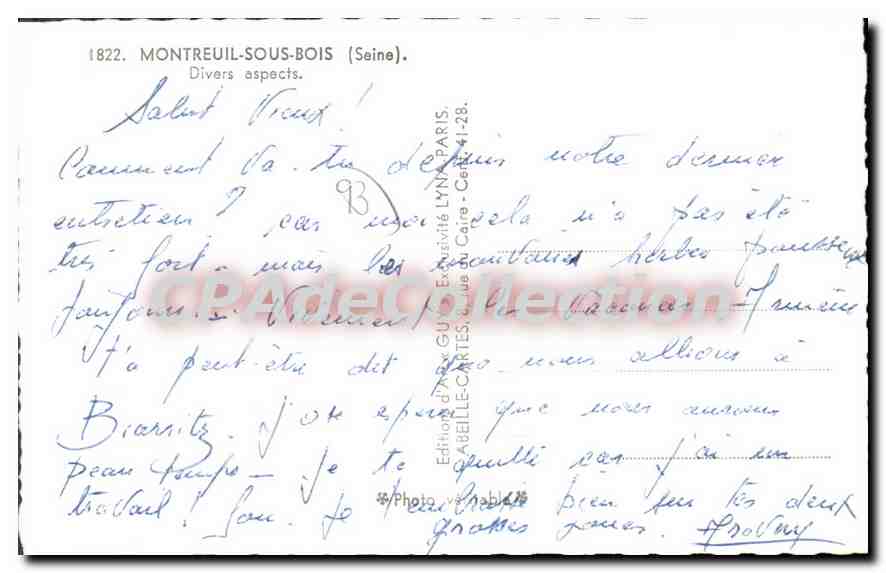 1822. MONTREUIL-SOUS-BOIS (Seine).
Divers aspects.
Salut Vieux!
Comment va-tu depuis notre dernier
entretien? car moi cela n'a pas été
93
très fort - mais les mauvaises herbes poussent
toujours - Vivement les Vacances
t'a peut-être dit que nous allions à
Biarritz. J'ose espérer que nous aurons
beau temps - Je te quitte car j'ai un
travail! fou. Je t'embrasse bien sur tes deux
grosses joues.
Editions d'Art GUY Exclusivité LYNA PARIS.
ABEILLE-CARTES, rue du Caire - Cen. 41-28.
Photo véritable
CPAdeCollection